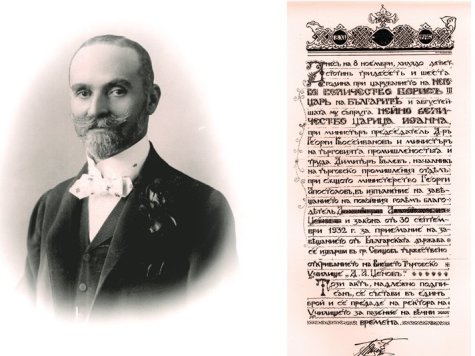 8.XI 1936
Днесъ на 8 ноември, хилядо девет
стотин тридесеть и шеста
година при царуването на Него
во Величество Борисъ III
Царь на Българитѣ и августей
шата му съпруга Нейно Вели
чество Царица Иоанна,
при министъръ председатель Д-ръ
Георги Кьосеивановъ и министъръ
на търговията промишлеността и
труда Димитъръ Вълевъ, началникъ
на търговско промишления отдѣлъ
при същото министерство Георги
Апостоловъ, въ изпълнение на завѣ
щанието на покойния голѣмъ благо
дѣтель Димитъръ Апостоловичъ
Ценовъ и закона отъ 30 септем
ври 1932 г. за приемание на за
вѣщанието отъ Българската държава
се извърши въ гр. Свищовъ тържествено
откриването на Висшето Търговско
Училище „Д. А. Ценовъ".
Този актъ, надлежно подпи
санъ, се състави въ единъ
брой и се предаде на ректора на
Училището за пазение на вѣчни
времена.